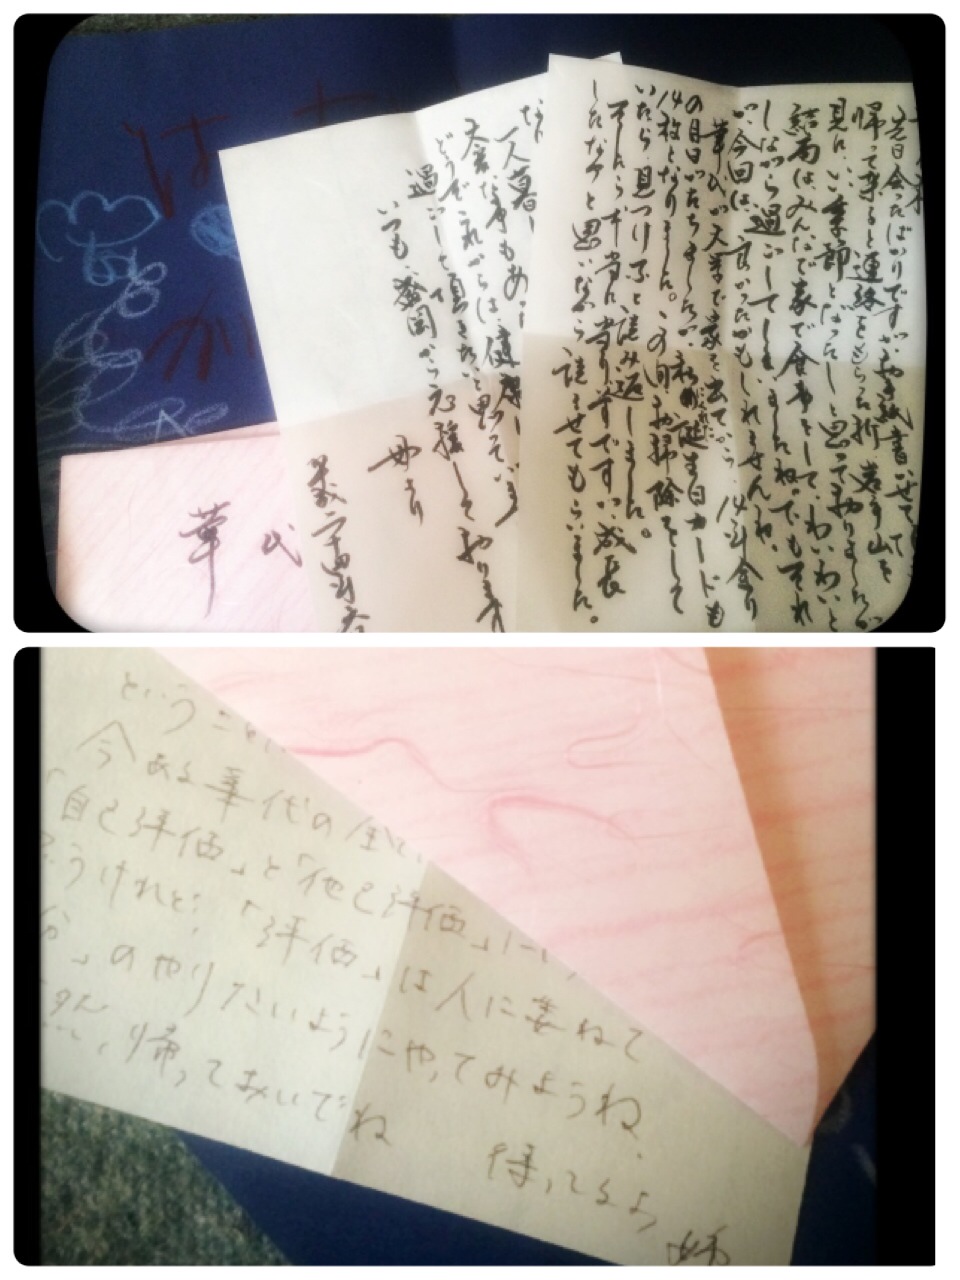 先日会ったばかりですがお手紙書かせて
帰って来ると連絡をもらった折、岩手山を
見に、いい季節となったしと思って居りましたが
結局は、みんなで家で食事をして、わいわいと
しながら過ごしてしまいましたね。でもそれ
が今回は、良かったかもしれませんね。
華代が大学で家を出てから、14年余り
の月日がたちましたが、私の誕生日カードも
14枚となりました。この間お掃除をして
いたら、見つけ、ずっと読み返しました。
本当に当り前ですが、成長
したなアと思いながら読ませてもらいました。
一人暮し
大変な事もあ
どうぞこれからは、健康
過ごして頂きたいと思っています
いつも盛岡から応援して居ります
母より
華代
はな
か
という
今ある華代の全て
「自己評価」と「他己評価」
うけれど、「評価」は人に委ねて
」のやりたいようにやってみようね、
帰っておいでね
待ってるよ
姉